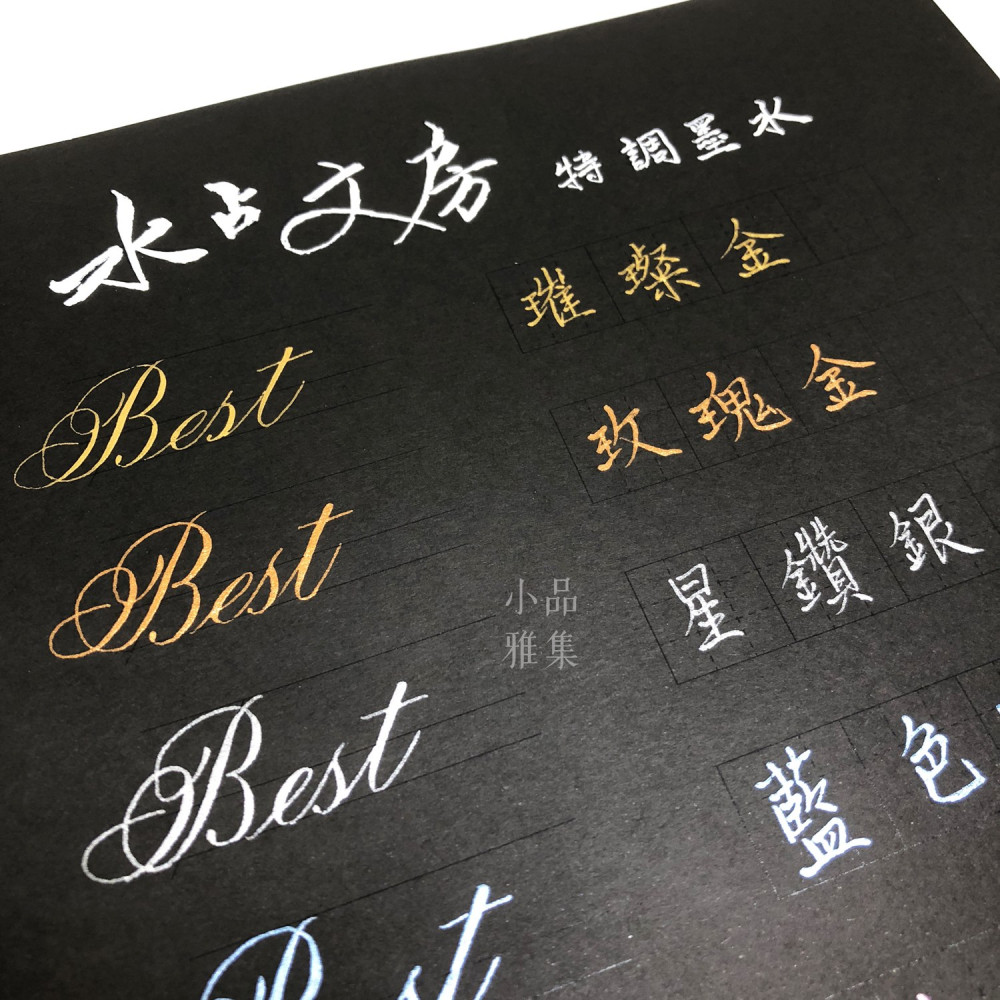 水占文房 特調墨水
Best 璀璨金
Best 玫瑰金
小品
雅集
Best 星鑽銀
Best 藍色